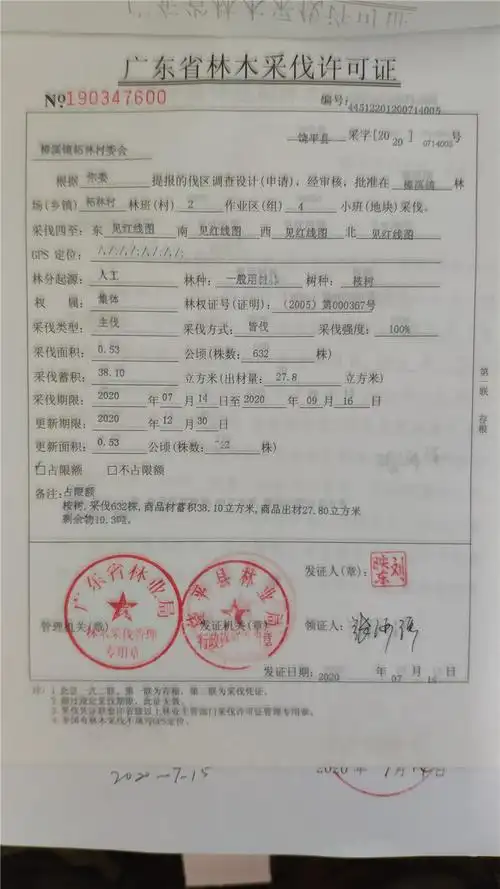 广东省林木采伐许可证
№190347600
编号:44512201200714005
饶平县 采字[2020] 0714005号
樟溪镇柘林村委会
根据 你委 提报的伐区调查设计(申请),经审核,批准在 樟溪镇 林
场(乡镇) 柘林村 林班(村) 2 作业区(组) 4 小班(地块)采伐。
采伐四至: 东 见红线图 南 见红线图 西 见红线图 北 见红线图
GPS 定位:
林分起源: 人工 林种: 一般用材林 树种: 桉树
权 属: 集体 林权证号(证明): (2005)第000367号
采伐类型: 主伐 采伐方式: 皆伐 采伐强度: 100%
采伐面积: 0.53 公顷(株数: 632 株)
采伐蓄积: 38.10 立方米(出材量: 27.8 立方米)
采伐期限: 2020 年 07 月 14 日至 2020 年 09 月 16 日
更新期限: 2020 年 12 月 30 日
更新面积: 0.53 公顷(株数: 株)
占限额 不占限额
备注: 占限额
桉树,采伐632株,商品材蓄积38.10立方米,商品出材27.80立方米
剩余物10.3吨。
第一联 存根
广东省林业局
林木采伐管理
专用章
饶平县林业局
管理机关(章) 发证机关(章)
发证人(章):
刘映东
领证人:
发证日期: 2020 年 07 月 日
注: 1.此证一式二联。第一联为存根,第二联为采伐凭证。
2.超过规定采伐期限,此证无效。
3.采伐凭证联套印省级以上林业主管部门采伐许可证管理专用章。
4.非国有林采伐不填写GPS定位。
2020-7-15
2020年